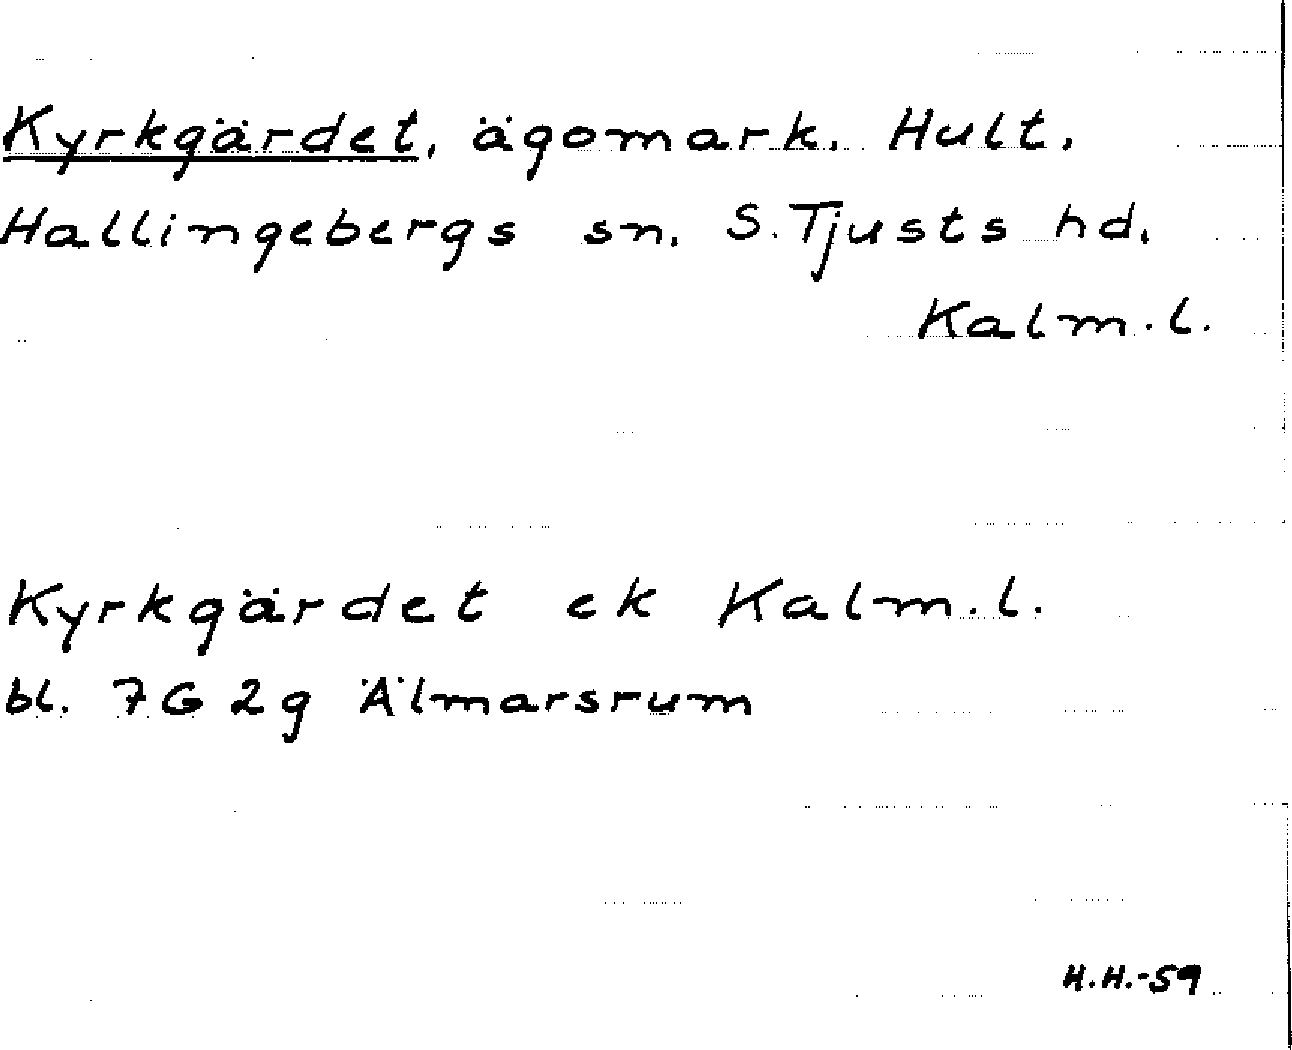 Kyrkgärdet, ägomark. Hult.
Hallingebergs sn. S. Tjusts hd.
Kalm. l.
Kyrkgärdet ek Kalm. l.
bl. 7G 2g Älmarsrum
H.H.-59